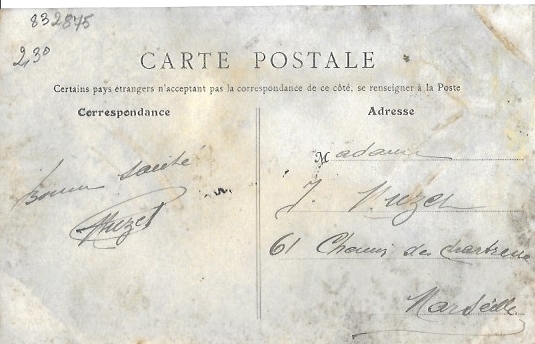 832875
2,30
CARTE POSTALE
Certains pays étrangers n'acceptant pas la correspondance de ce côté, se renseigner à la Poste
Correspondance
Bonne santé
Adresse
Madame
J.
61 Chemin des chartreux
Marseille